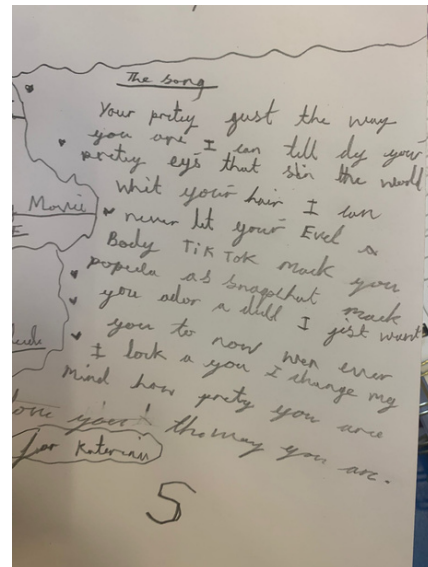 The song
Your pretey gust the way
you are I can tell dy your
pretey eys that skin the world
whit your hair I can
never let your Evel a
Body TikTok mack you
popeula as snapchat mack
you ador a dull I jest want
you to now wen ever
I look a you I change my
mind how prety you are
the way you are.
for Katerina
S
Movie
E